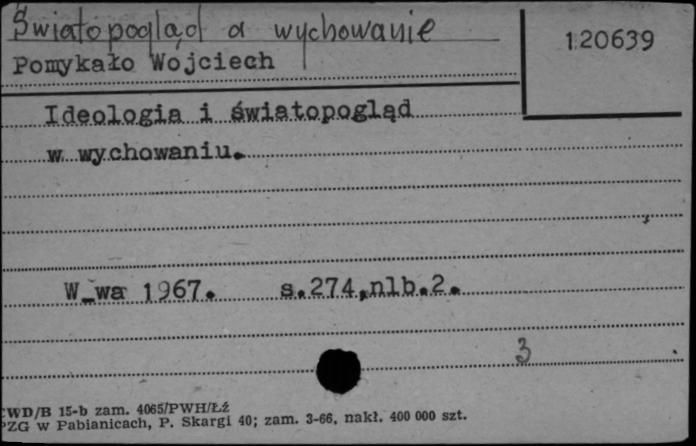 Światopogląd a wychowanie
120639
Pomykało Wojciech
Ideologia i światopogląd
w wychowaniu.
W_wa 1967. s.274,nlb.2.
3
CWD/B 15-b zam. 4065/PWH/Łź
PZG w Pabianicach, P. Skargi 40; zam. 3-66, nakł. 400 000 szt.